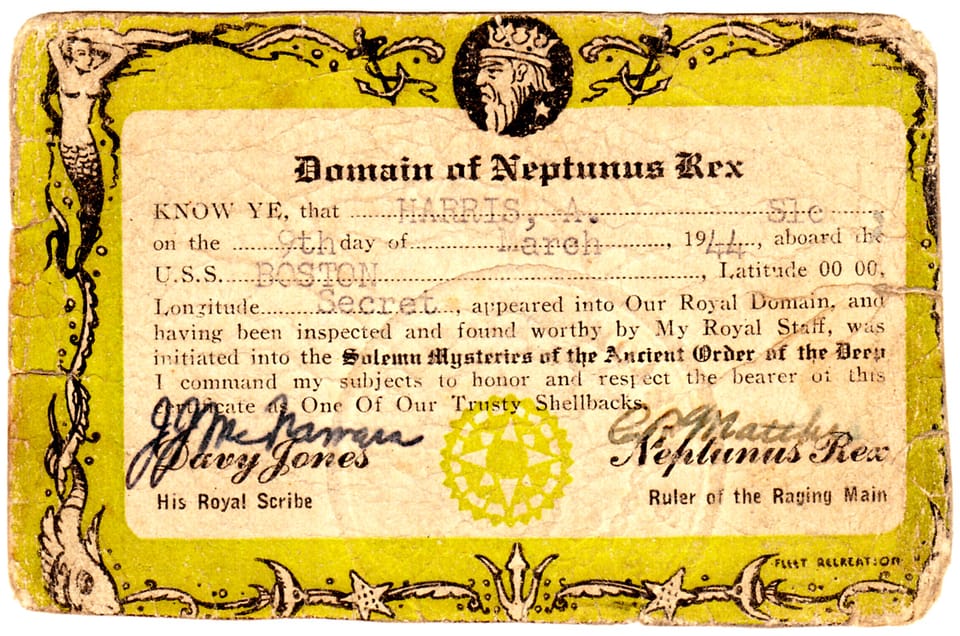 Domain of Neptunus Rex
KNOW YE, that HARRIS, A. S1c,
on the 9th day of March, 1944, aboard the
U.S.S. BOSTON, Latitude 00 00,
Longitude Secret, appeared into Our Royal Domain, and
having been inspected and found worthy by My Royal Staff, was
initiated into the Solemn Mysteries of the Ancient Order of the Deep
I command my subjects to honor and respect the bearer of this
certificate as One Of Our Trusty Shellbacks.
Davy Jones
Neptunus Rex
His Royal Scribe
Ruler of the Raging Main
FLEET RECREATION